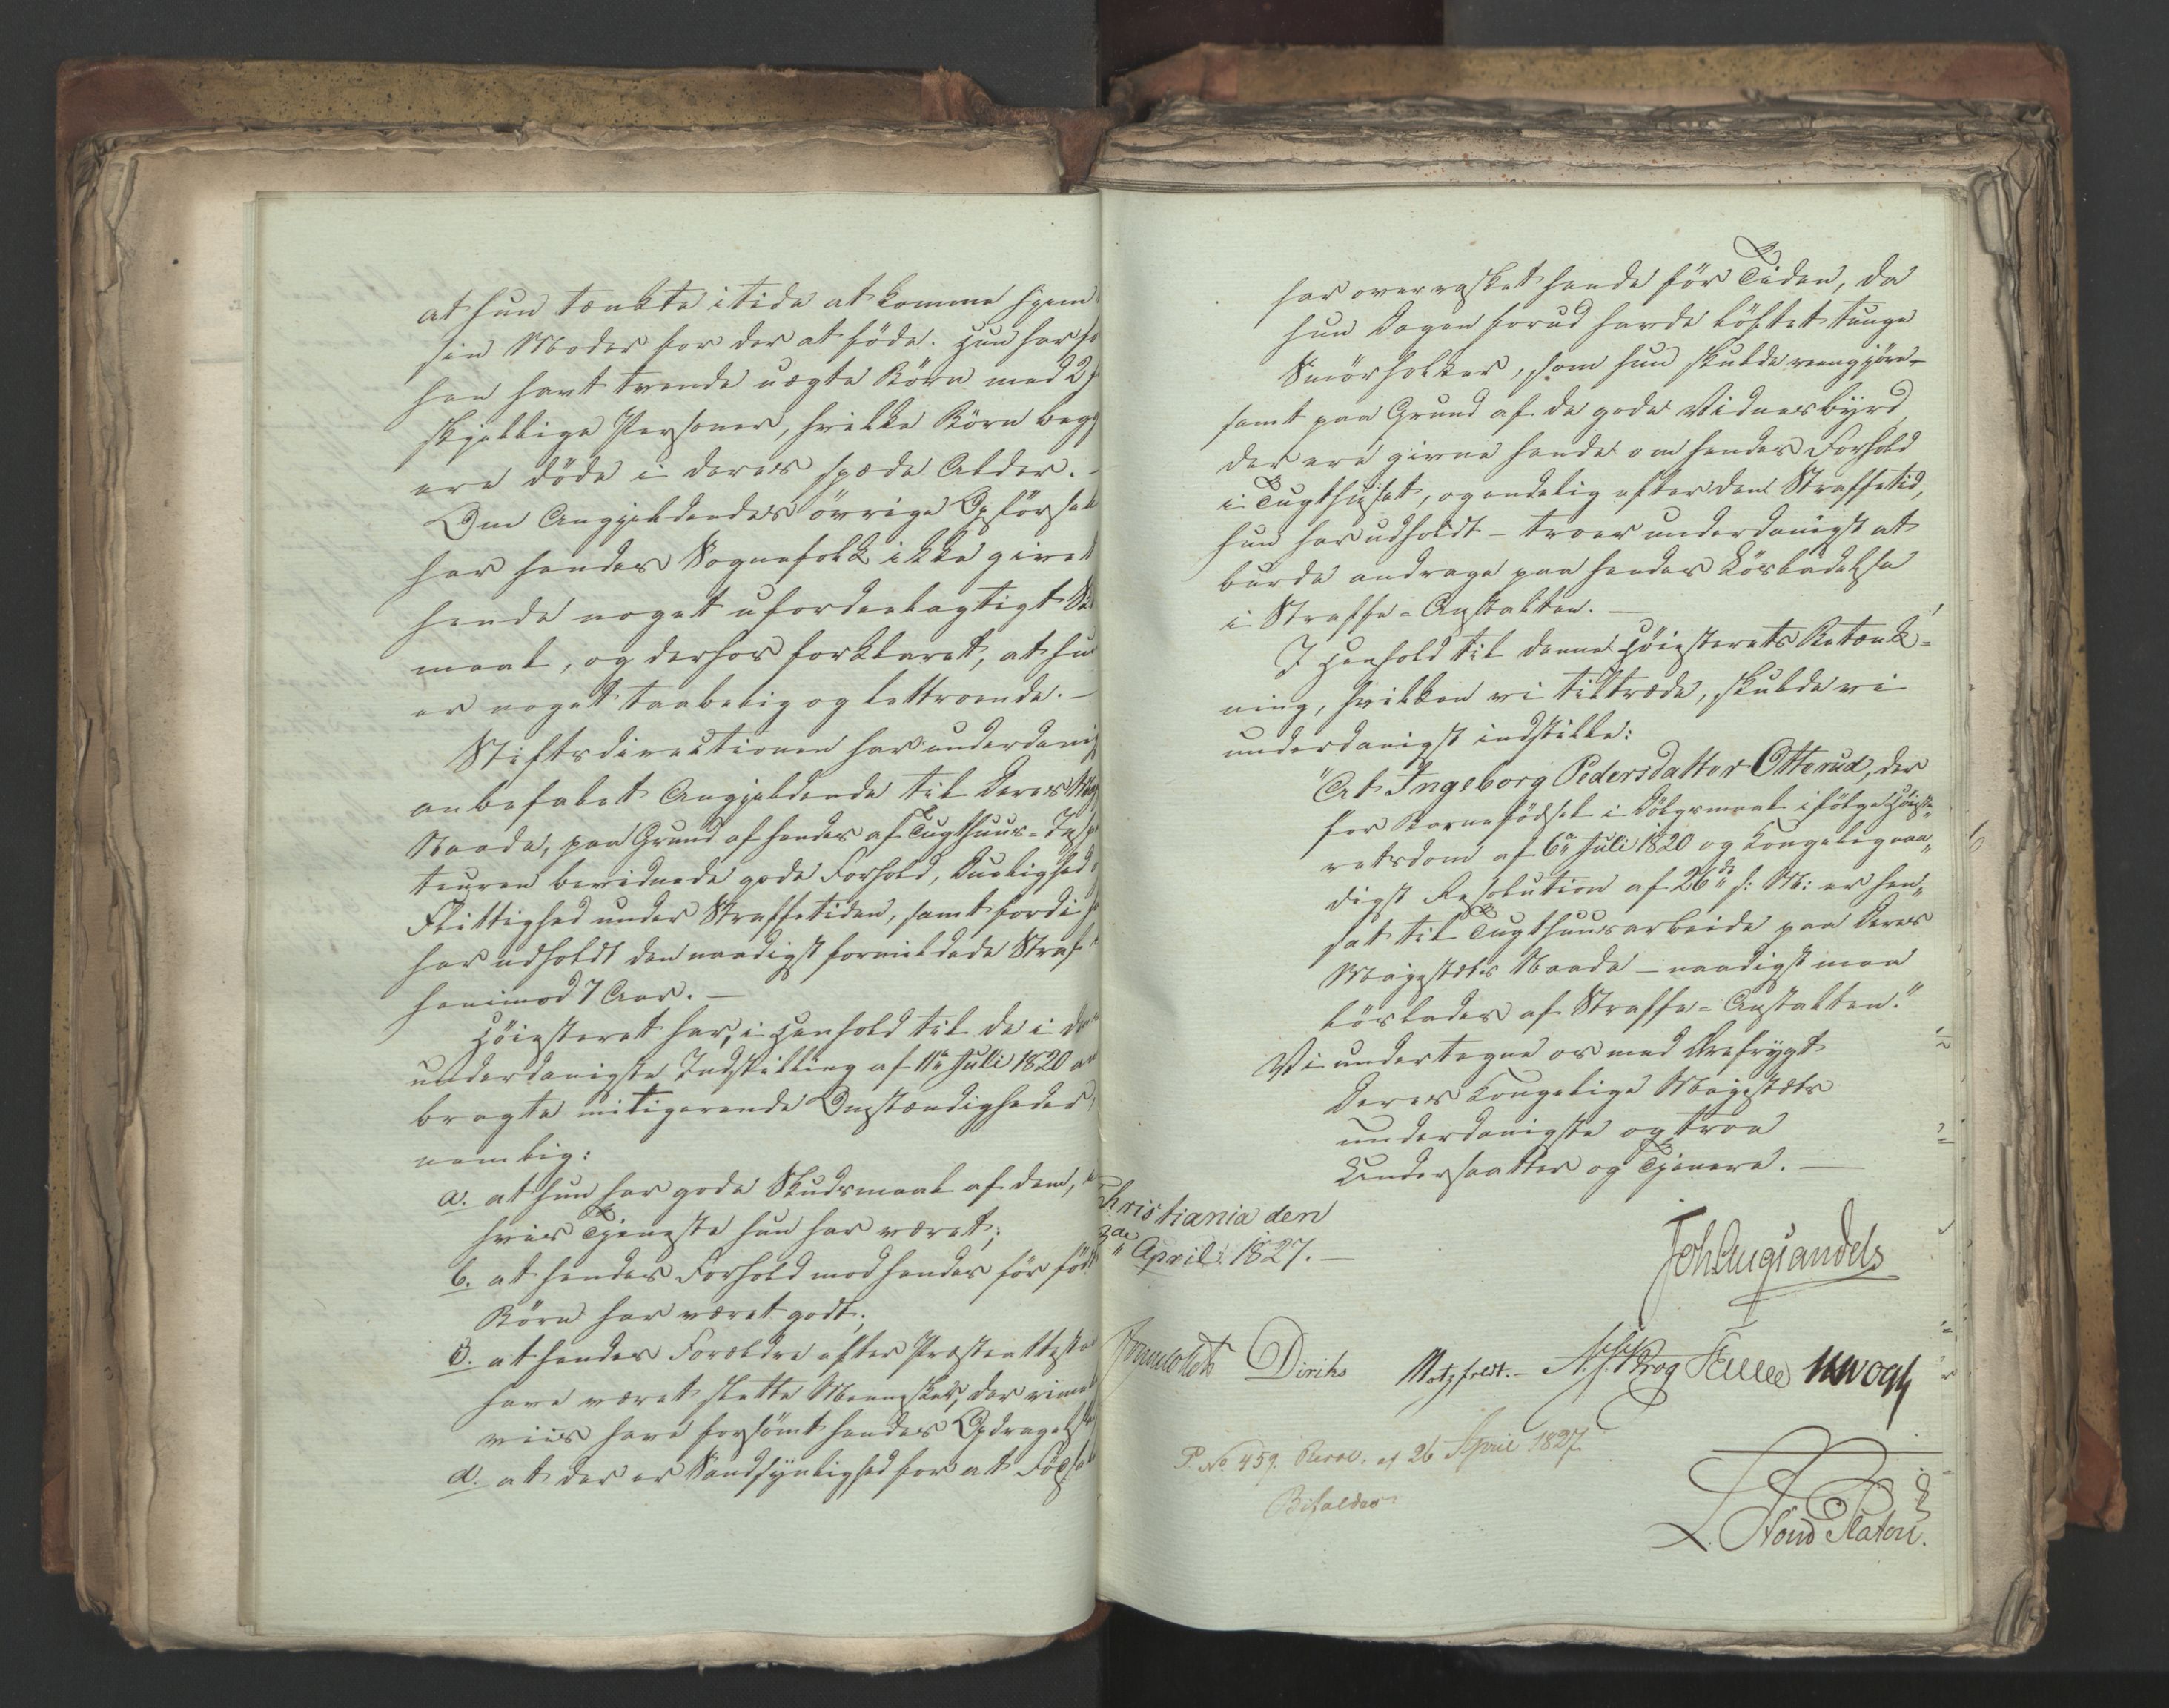 at hun tænkte itide at komme hjem
sin Moder for der at föde. Hun har
hen havt trende uægte Börn med 2
skjellige Personer, hvilke Börn
ere döde i deres spæde Alder. -
Om Angjeldendes övrige Opförsel
har hendes Sognefolk ikke givet
hende noget ufordeelagtigt
maal, og derhos forklaret, at hun
er noget taabelig og lettroende. -
Stiftsdirectionen har underdanig
anbefalet Angjeldende til Deres
Naade, paa Grund af hendes af Tugthuus-
teuren bevidnede gode Forhold, Duelighed
Flittighed under Straffetiden, samt fordi
har udholdt den naadigst formildede Straf
henimod 7 Aar. -
Höiesteret har, i Henhold til de i
underdanigste Indstilling af 11te Juli 1820
bragte mitigerende Omstændigheder,
nemlig:
a. at hun har gode Skudsmaal af dem,
hvis Tjeneste hun har været;
b. at hendes Forhold mod hendes för
Börn har været godt;
c. at hendes Forældre efter Præstenattest
have været slette Mennesker, der
viis have forsömt hendes Opdragelse
d. at der er Sandsynlighed for at
har overrasket hende för Tiden, da
hun Dagen forud havde löftet tunge
Smörholker, som hun skulde reengjöre -
samt paa Grund af de gode Vidnesbyrd,
der ere givne hende om hendes Forhold
i Tugthuset, og endelig efter den Straffetid,
hun har udholdt - troer underdanigst at
burde andrage paa hendes Lösladelse
i Straffe-Anstalten. -
I Henhold til denne Höiesterets Betænk-
ning, hvilken vi tiltræde, skulde vi
underdanigst indstille:
"At Ingeborg Pedersdatter Otterud, der
for Barnefödsel i Dölgsmaal ifölge Höieste-
retsdom af 6te Juli 1820 og Kongelig naa-
digst Resolution af 26de s: M: er hen-
sat til Tugthuusarbeide paa Deres
Majestæts Naade - naadigst maa
löslades af Straffe-Anstalten."
Vi undertegne os med Ærefrygt
Deres Kongelige Majestæts
underdanigste og troe
Undersaatter og Tjenere. -
Christiania den
3de April 1827. -
Joh Aug Sandels
Diriks Motzfeldt. - Krog
P. No 459. Resol. af 26 April 1827
Bifaldes
L. Stoud Platou.